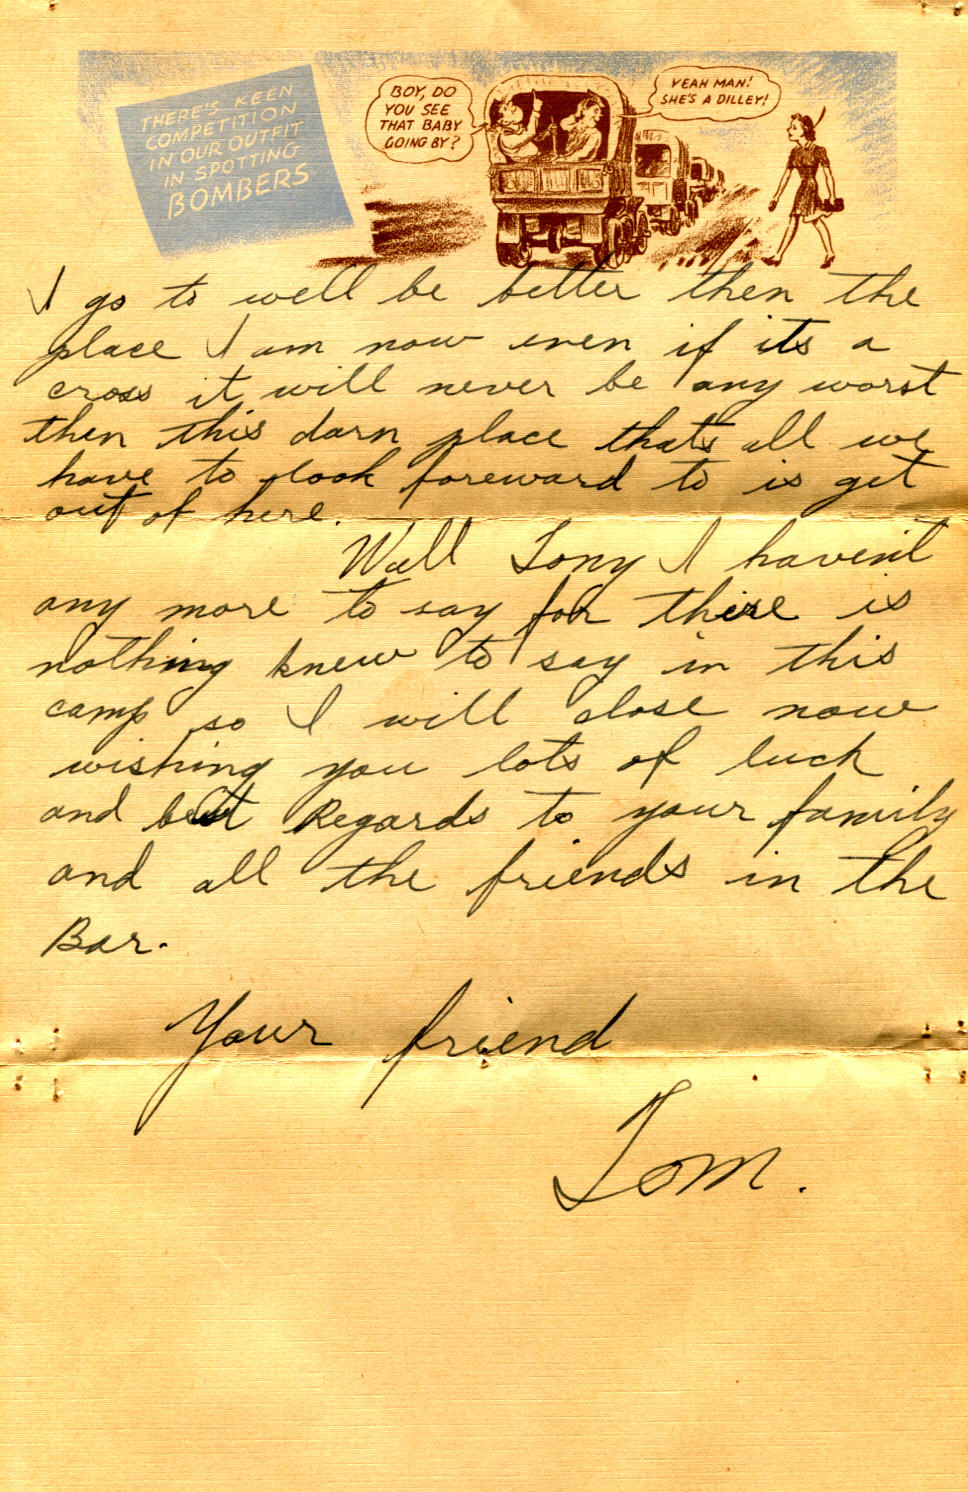 THERE'S KEEN
COMPETITION
IN OUR OUTFIT
IN SPOTTING
BOMBERS
BOY, DO
YOU SEE
THAT BABY
GOING BY?
YEAH MAN!
SHE'S A DILLEY!
I go to well be better then the
place I am now even if its a
cross it will never be any worst
then this darn place thats all we
have to look foreward to is get
out of here.
Well Tony I haven't
any more to say for there is
nothing knew to say in this
camp so I will close now
wishing you lots of luck
and best Regards to your family
and all the friends in the
Bar.
Your friend
Tom.